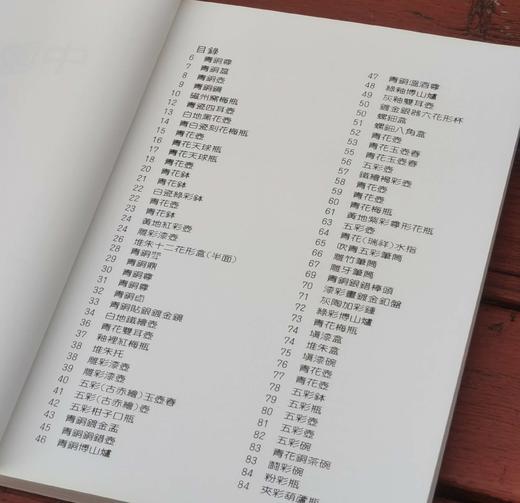 目錄
6 青銅尊
7 青銅盒
8 青銅壺
9 青銅鏡
10 磁州窯梅瓶
12 青瓷四耳壺
13 白地黑花壺
14 青白瓷刻花梅瓶
15 青花壺
16 青花天球瓶
17 青花天球瓶
18 青花壺
20 青花鉢
21 青花鉢
22 白瓷綠彩鉢
22 青花壺
23 青花鉢
24 黃地紅彩壺
24 雕彩漆壺
26 堆朱十二花形盒(半面)
28 青銅斝
29 青銅鼎
30 青銅尊
31 青銅尊
32 青銅卣
33 青銅貼銀鍍金鏡
34 白地鐵繪壺
36 青花雙耳壺
37 釉裡紅梅瓶
38 堆朱托
38 雕彩漆壺
39 雕彩漆壺
40 五彩(古赤繪)玉壺春
41 五彩(古赤繪)壺
42 五彩柑子口瓶
43 青銅鍍金盂
45 青銅銅錯壺
46 青銅博山爐
47 青銅溫酒尊
48 綠釉博山爐
49 灰釉雙耳壺
50 鍍金銀器六花形杯
50 螺鈿盒
51 螺鈿八角盒
52 青花壺
55 青花玉壺春
55 青花玉壺春
56 五彩壺
57 鐵繪褐彩壺
58 青花壺
59 青花壺
60 青花梅瓶
61 黃地紫彩尊形花瓶
63 五彩壺
64 青花(瑞祥)水指
65 吹青五彩筆筒
66 雕竹筆筒
67 雕牙筆筒
69 青銅銀錯椁頭
70 漆彩畫鍍金釦盤
71 灰陶加彩鍾
72 綠彩博山爐
73 青花梅瓶
74 填漆盒
74 堆朱盒
75 填漆碗
76 青花壺
77 青花壺
78 五彩鉢
79 五彩瓶
80 五彩壺
81 五彩壺
82 五彩碗
83 青花銅茶碗
83 鬪彩碗
84 粉彩瓶
84 夾彩葫蘆瓶